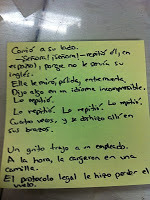 Corrió a su lado.
—¡Señora! ¡Señora! —repitió él, en
español, porque no le servía su
inglés.
Ella le miró, pálida, enfermante.
Dijo algo en un idioma incomprensible.
Lo repitió.
Lo repitió. Lo repitió. Lo repitió.
Cuatro veces, y se deshizo allí en
sus brazos.
Un grito trajo a un empleado.
A la hora, la cargaron en una
camilla.
El protocolo legal le hizo perder el
vuelo.